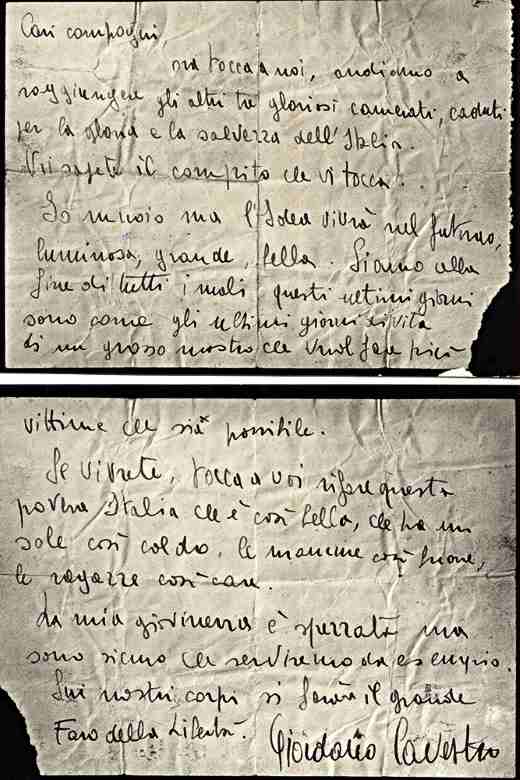 Cari compagni
ora tocca a noi, andiamo a
raggiungere gli altri tre gloriosi camerati, caduti
per la gloria e la salvezza dell'Italia.
Voi sapete il compito che vi tocca.
Io muoio ma l'Idea vivrà nel futuro,
luminosa, grande, bella. Siamo alla
fine di tutti i mali questi ultimi giorni
sono come gli ultimi giorni di vita
di un grosso mostro che vuol fare più
vittime che sia possibile.
Se vivrete, tocca a voi rifare questa
povera Italia che è così bella, che ha un
sole così caldo, le mamme così buone,
le ragazze così care.
La mia giovinezza è spezzata ma
sono sicuro che serviremo da esempio.
Sui nostri corpi si farà il grande
Faro della Libertà. Giordano Cavestro